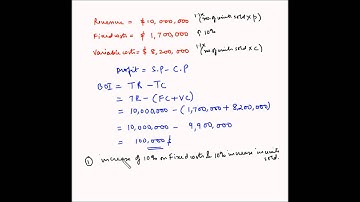 Revenue = $10,000,000 (no. of units sold x p)
Fixed costs = $ 1,700,000 ↑ 10%
Variable costs = $ 8,200,000 (no. of units sold x c)
Profit = S.P - C.P
= TR - TC
= TR - (FC + VC)
= 10,000,000 - (1,700,000 + 8,200,000)
= 10,000,000 - 9,900,000
= 100,000 $
① increase of 10% on fixed costs & 10% increase in units sold.